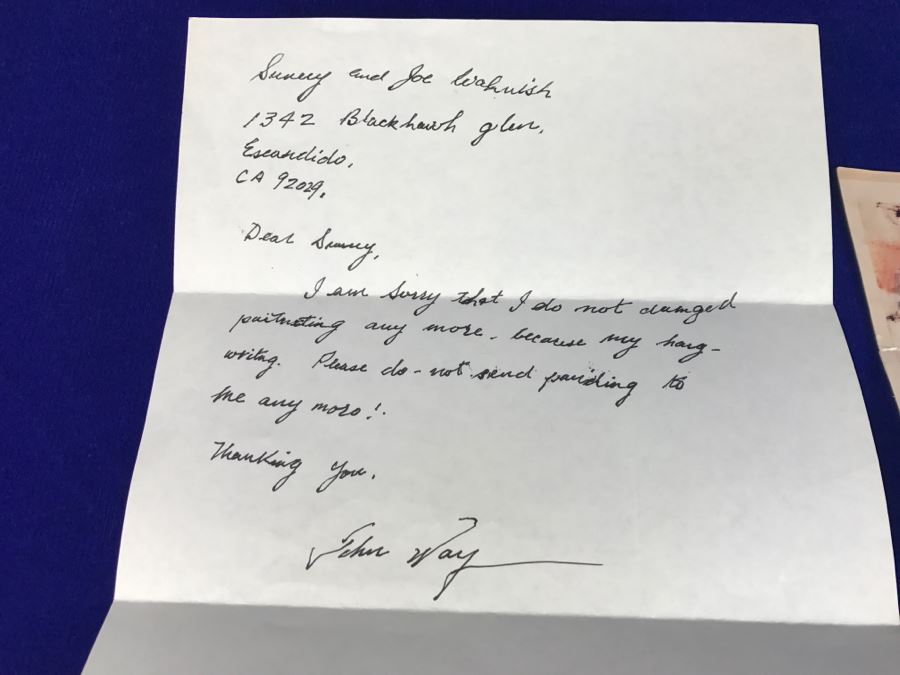 Sunny and Joe Wahnish
1342 Blackhawk glen,
Escondido,
CA 92029.
Dear Sunny,
I am sorry that I do not damged
any more - because my
writng. Please do - not send to
me any more!.
Thanking You.
John Way